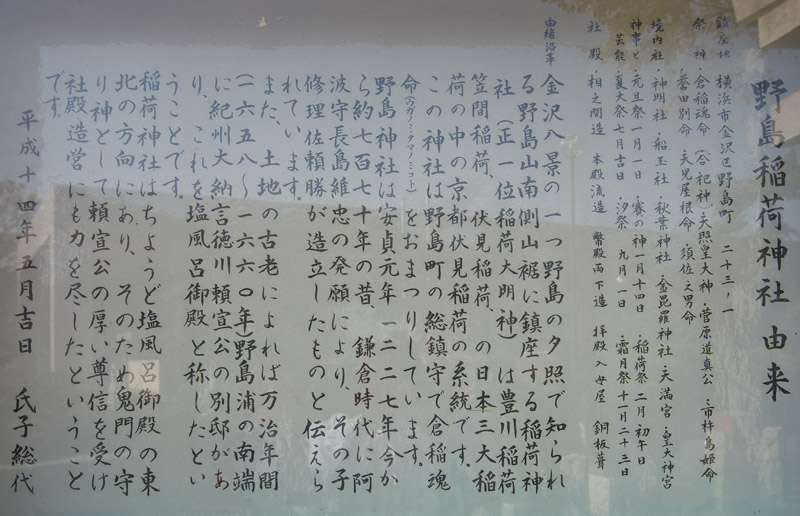 野島稲荷神社 由来
鎮座地 横浜市金沢区野島町 二十三ノ一
祭神 ・倉稲魂命(合祀神)・天照皇大神・菅原道真公・市杵島姫命
・誉田別命・天児屋根命・須佐之男命
境内社 ・神明社・船玉社・秋葉神社・金毘羅神社・天満宮・皇大神宮
神事と ・元旦祭一月一日 ・賽の神一月十四日 ・稲荷祭二月初午日
芸能 ・夏大祭七月吉日 ・汐祭 九月一日 ・霜月祭十一月二十三日
社殿 ・相之間造 本殿流造 幣殿両下造 拝殿入母屋 銅板葺
由緒沿革
金沢八景の一つ野島の夕照で知られ
る野島山南側山裾に鎮座する稲荷神
社(正一位稲荷大明神)は豊川稲荷
笠間稲荷、伏見稲荷、の日本三大稲
荷の中の京都伏見稲荷の系統です。
この神社は野島町の総鎮守で倉稲魂
命(ウガノミタマノミコト)をおまつりしています。
野島神社は安貞元年一二二七年今か
ら約七百七十年の昔、鎌倉時代に阿
波守長島維忠の発願により、その子
修理佐頼勝が造立したものと伝えら
れています。
また、土地の古老によれば万治年間
(一六五八〜一六六〇年)野島浦の南端
に紀州大納言徳川頼宣公の別邸があ
り、これを塩風呂御殿と称したとい
うことです。
稲荷神社はちょうど塩風呂御殿の東
北の方向にあり、そのため鬼門の守
り神として頼宣公の厚い尊信を受け
社殿造営にも力を尽したということ
です。
平成十四年五月吉日 氏子総代